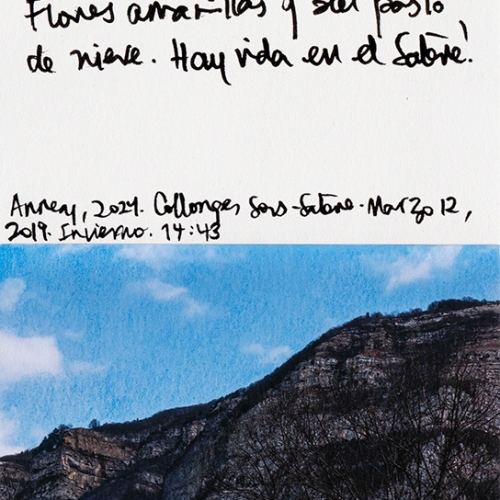 Flores amarillas y su pasto
de nieve. Hay vida en el Salève!
Annecy, 2021. Collonges Sous-Salève. Marzo 12,
2019. Invierno. 14:43